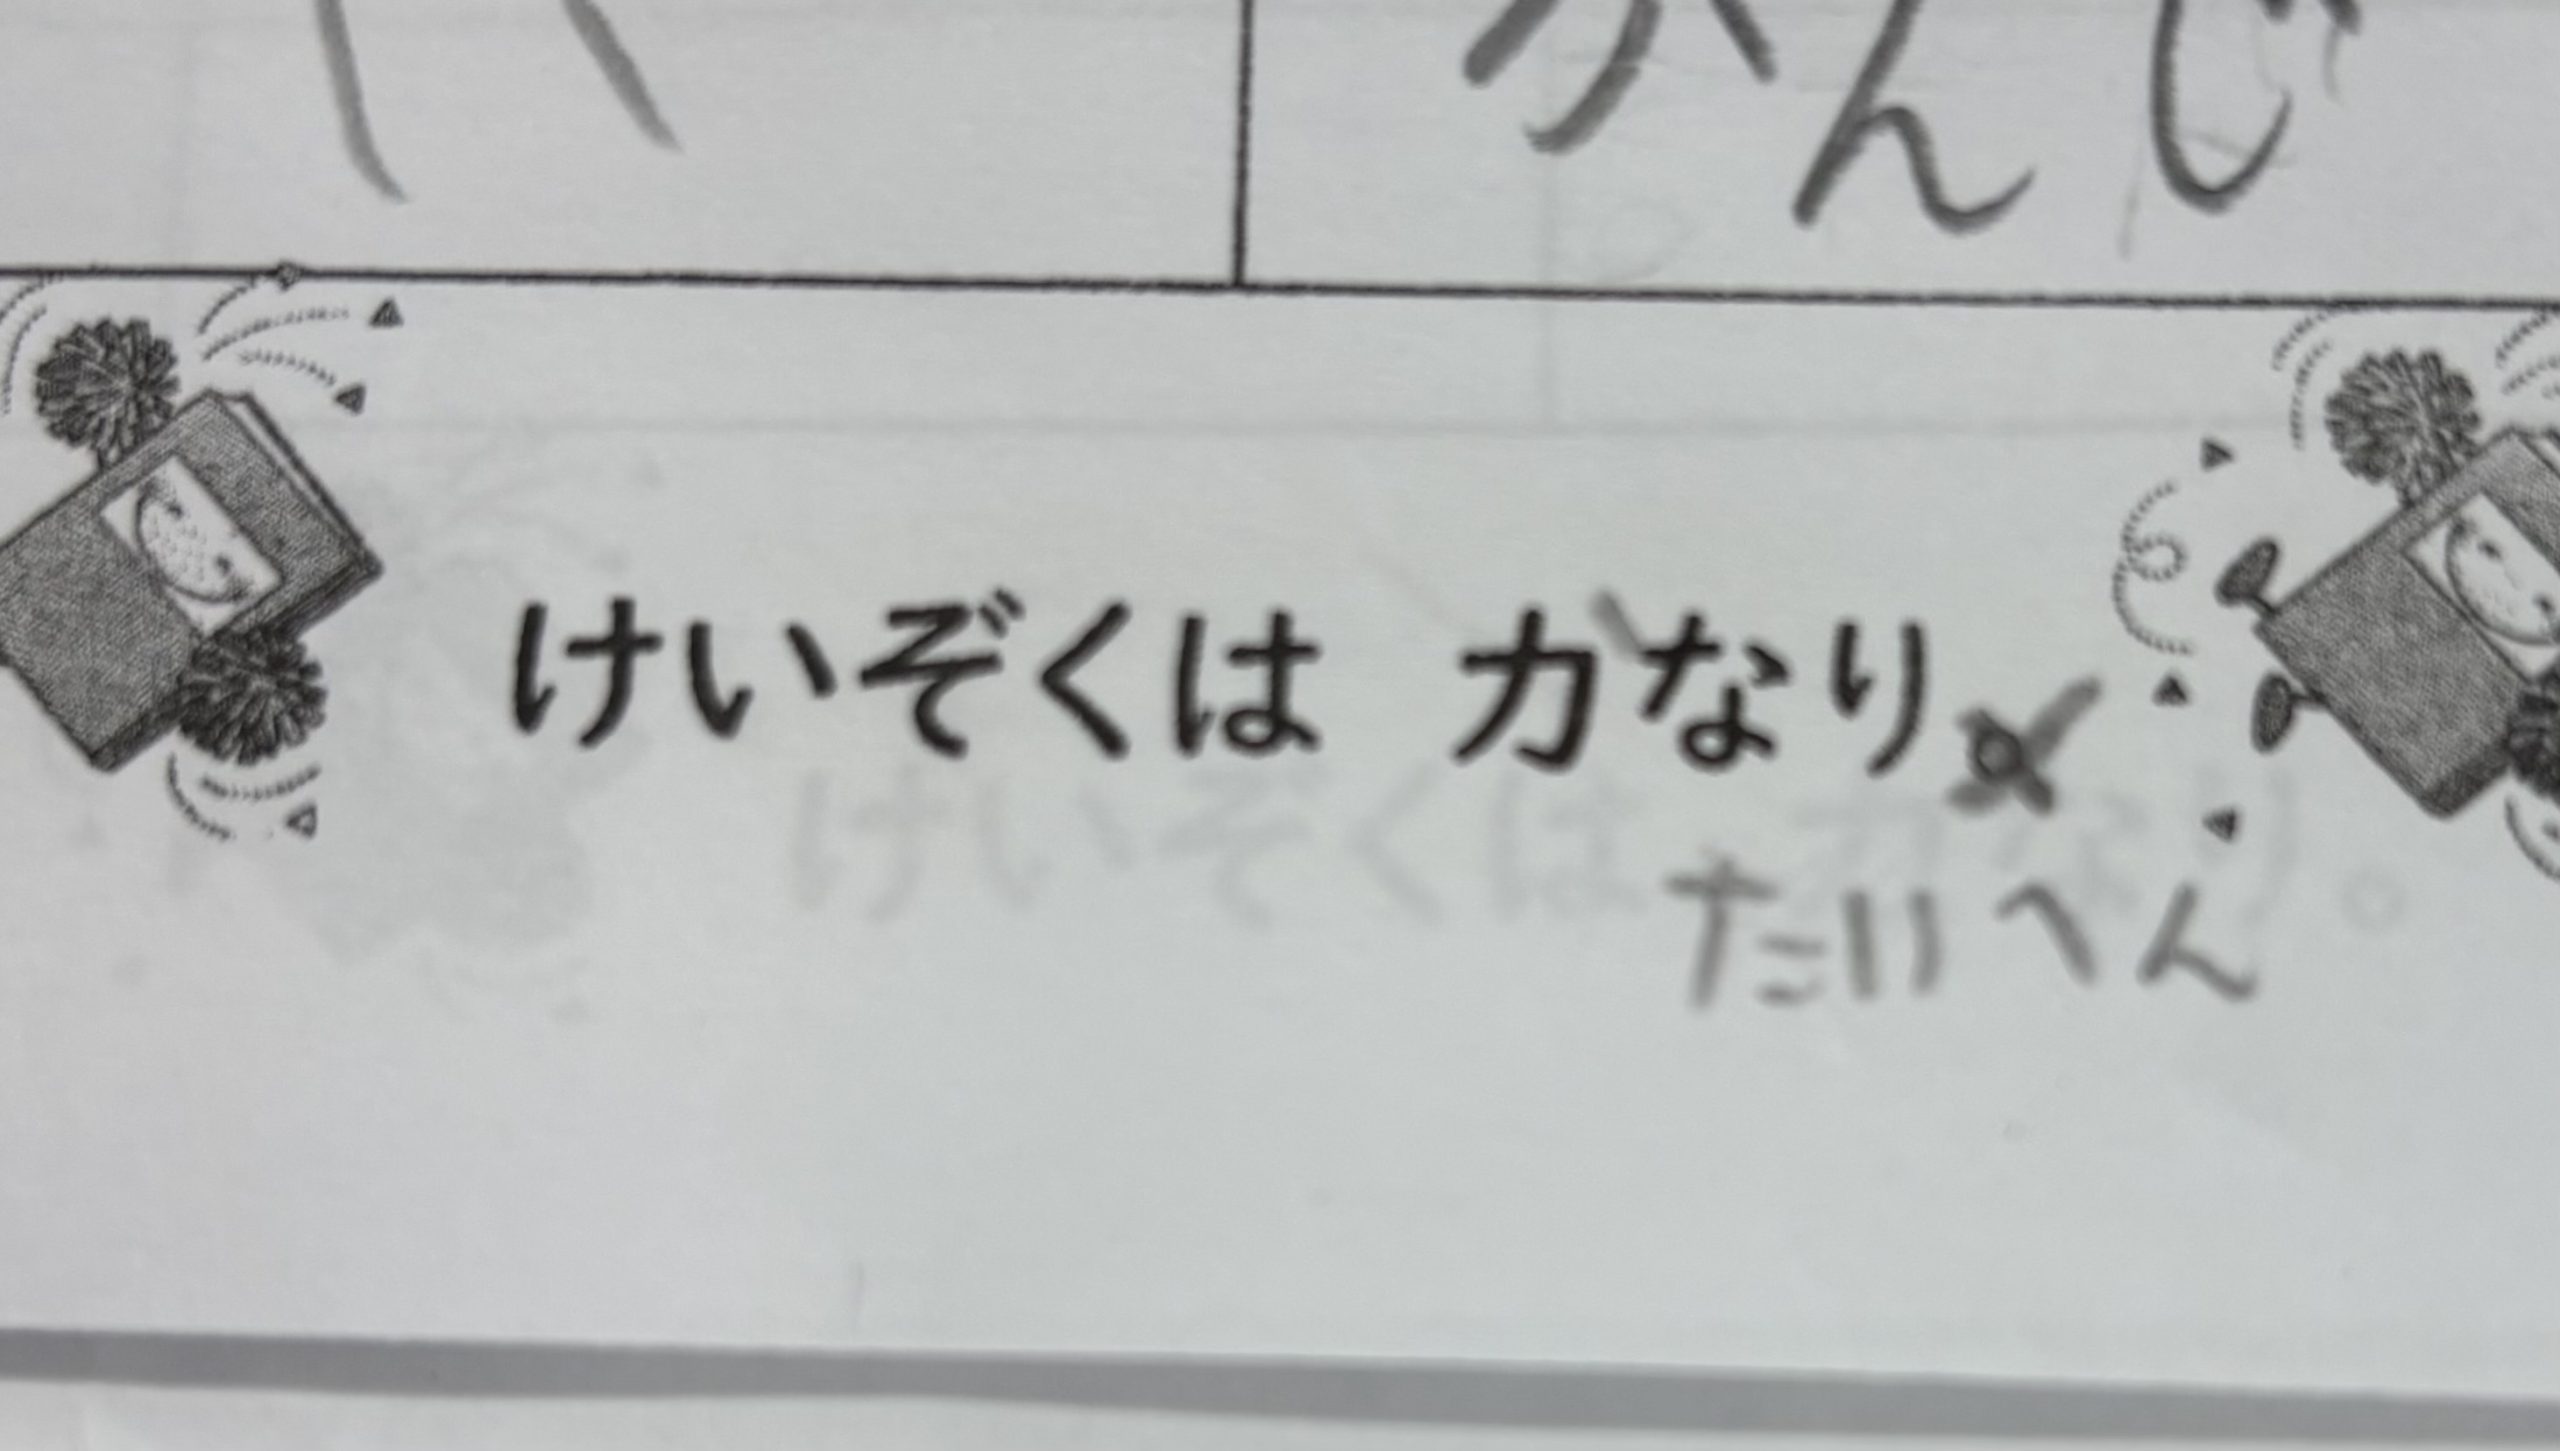 かんじ
けいぞくは 力なり。
たいへん